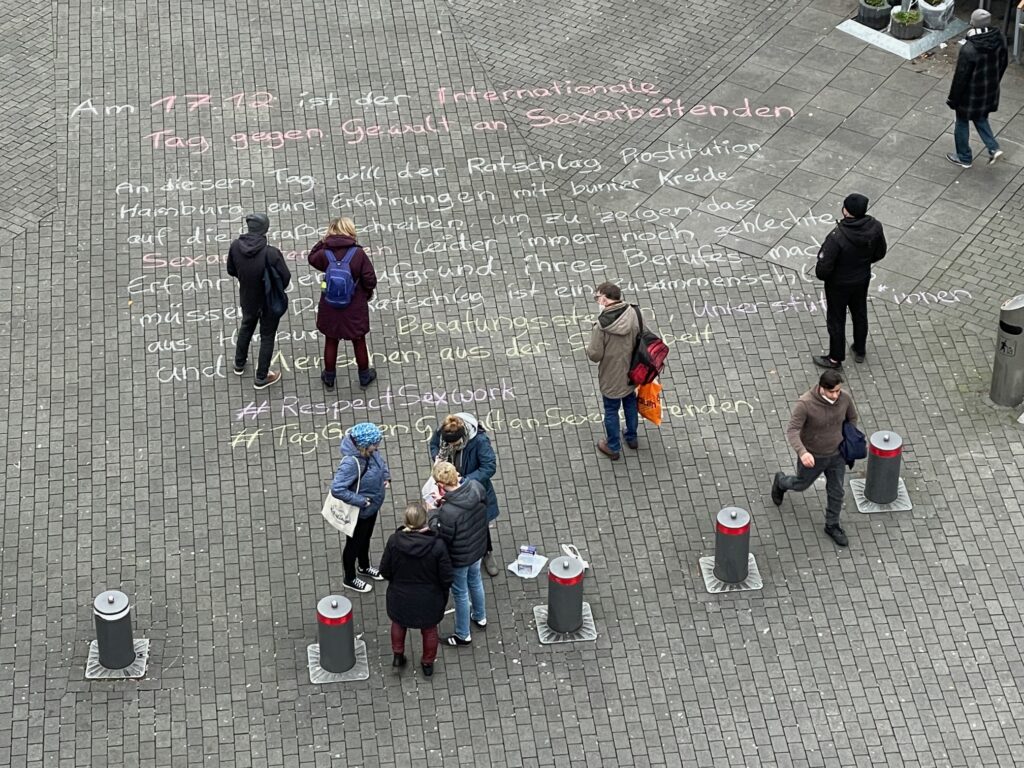 Am 17.12 ist der Internationale
Tag gegen Gewalt an Sexarbeitenden
An diesem Tag will der Ratschlag Prostitution
Hamburg eure Erfahrungen mit bunter Kreide
auf die Straße schreiben, um zu zeigen, dass
leider immer noch schlechte
aufgrund ihres Berufes
müssen. Ratschlag ist ein
aus Beratungsstellen, Unterstütz *innen
und Menschen aus der
# RespectSexwork
# TagGegenGewaltanSexarbeitenden